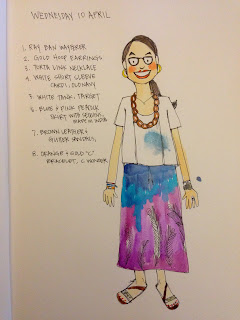 WEDNESDAY 10 APRIL
1. RAY BAN WAYFARER
2. GOLD HOOP EARRINGS
3. TORTA LINK NECKLACE
4. WHITE SHORT SLEEVE
CARDI, OLD NAVY
5. WHITE TANK, TARGET
6. BLUE & PINK PEACOCK
SKIRT WITH SEQUINS,
MADE IN INDIA
7. BROWN LEATHER &
GLITTER SANDALS,
8. ORANGE & GOLD "C"
BRACELET, C WONDER